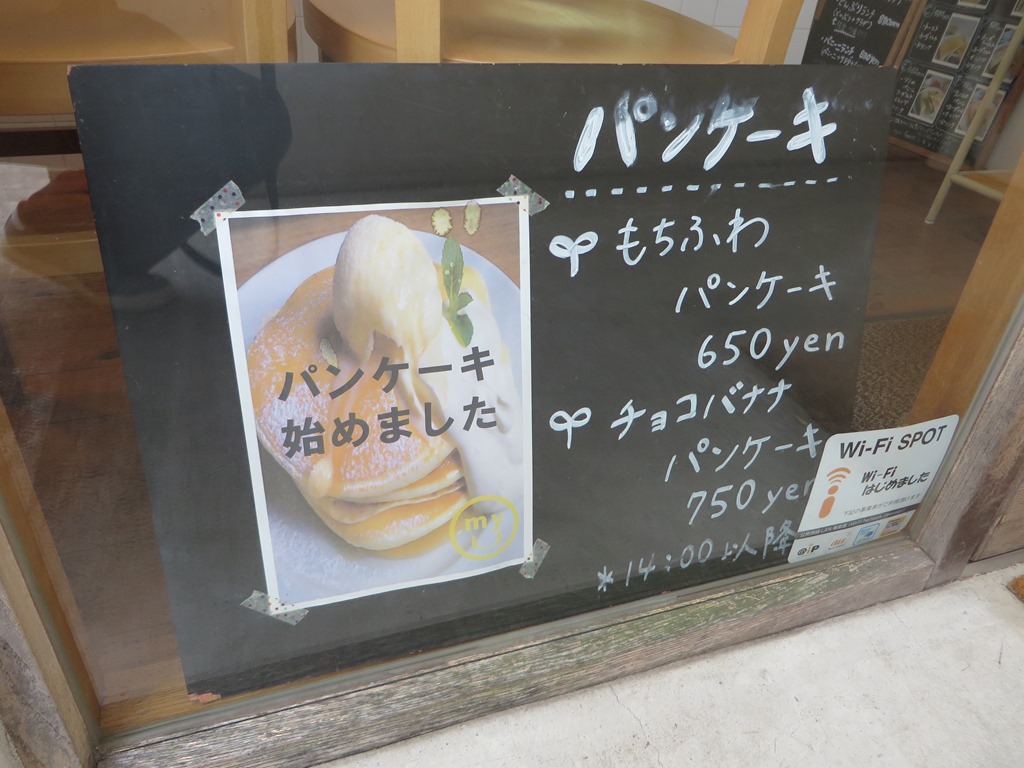 パンケーキ
もちふわ
パンケーキ
650yen
チョコバナナ
パンケーキ
750yen
*14:00以降
パンケーキ
始めました
my
Wi-Fi SPOT
Wi-Fi
はじめました